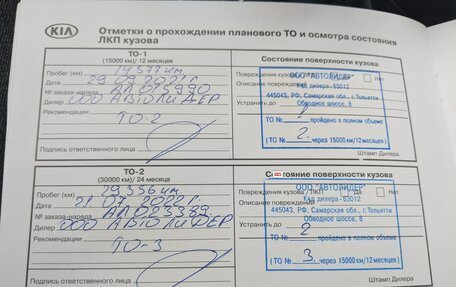 KIA Отметки о прохождении планового ТО и осмотра состояния
ЛКП кузова
ТО-1
(15000 км)/ 12 месяцев
Состояние поверхности кузова
Пробег (км) 14577 км
Дата 29.09.2021г
№ заказа-наряда АЛ
Дилер ООО АВТОЛИДЕР
Рекомендации
ТО-2
Подпись ответственного лица
Повреждения кузова Да Нет
Описание повреждений
Устранить до
ООО "АВТОЛИДЕР"
Код дилера - 63012
445043, РФ, Самарская обл., г. Тольятти
Обводное шоссе, 8
ТО № 1 пройдено в полном объеме
ТО № 2 через 15000 км/12 месяцев
Штамп Дилера
ТО-2
(30000 км)/ 24 месяца
Состояние поверхности кузова
Пробег (км) 29356 км
Дата 21.07.2022г
№ заказа-наряда АЛ
Дилер ООО АВТОЛИДЕР
Рекомендации
ТО-3
Подпись ответственного лица
Повреждения кузова / ЛКП Да Нет
Описание
Устранить до
ООО "АВТОЛИДЕР"
Код дилера - 63012
445043, РФ, Самарская обл., г. Тольятти
Обводное шоссе, 8
ТО № 2 пройдено в полном объеме
ТО № 3 через 15000 км/12 месяцев
Штамп Дилера